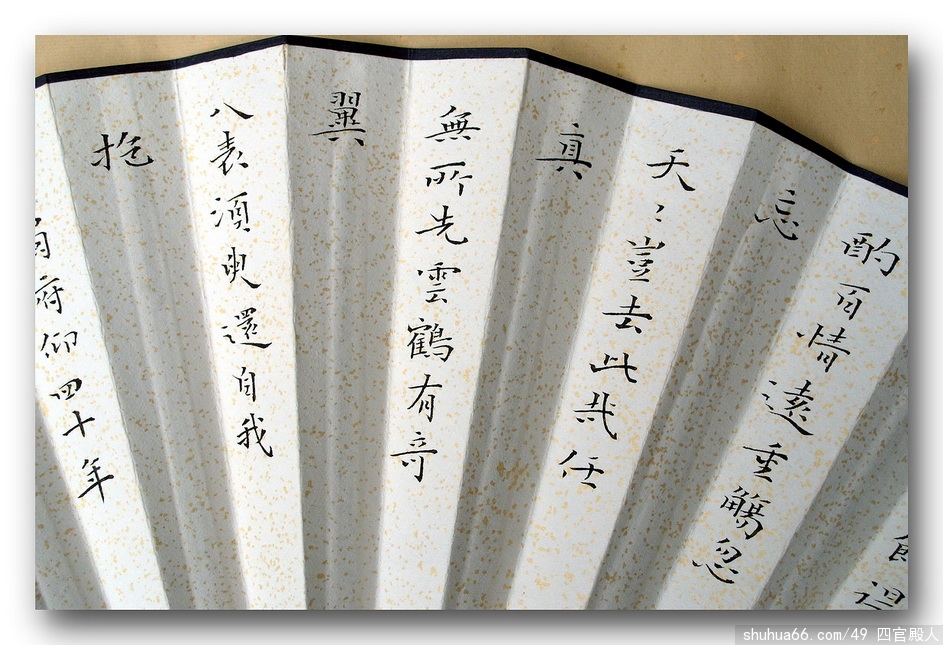 飲得
酌百情遠重觴忽
忘
天〻豈去此哉任
真
無所先雲鶴有竒
翼
八表須臾還自我
抱
仰四十年
shuhua66.com/49 四官殿人